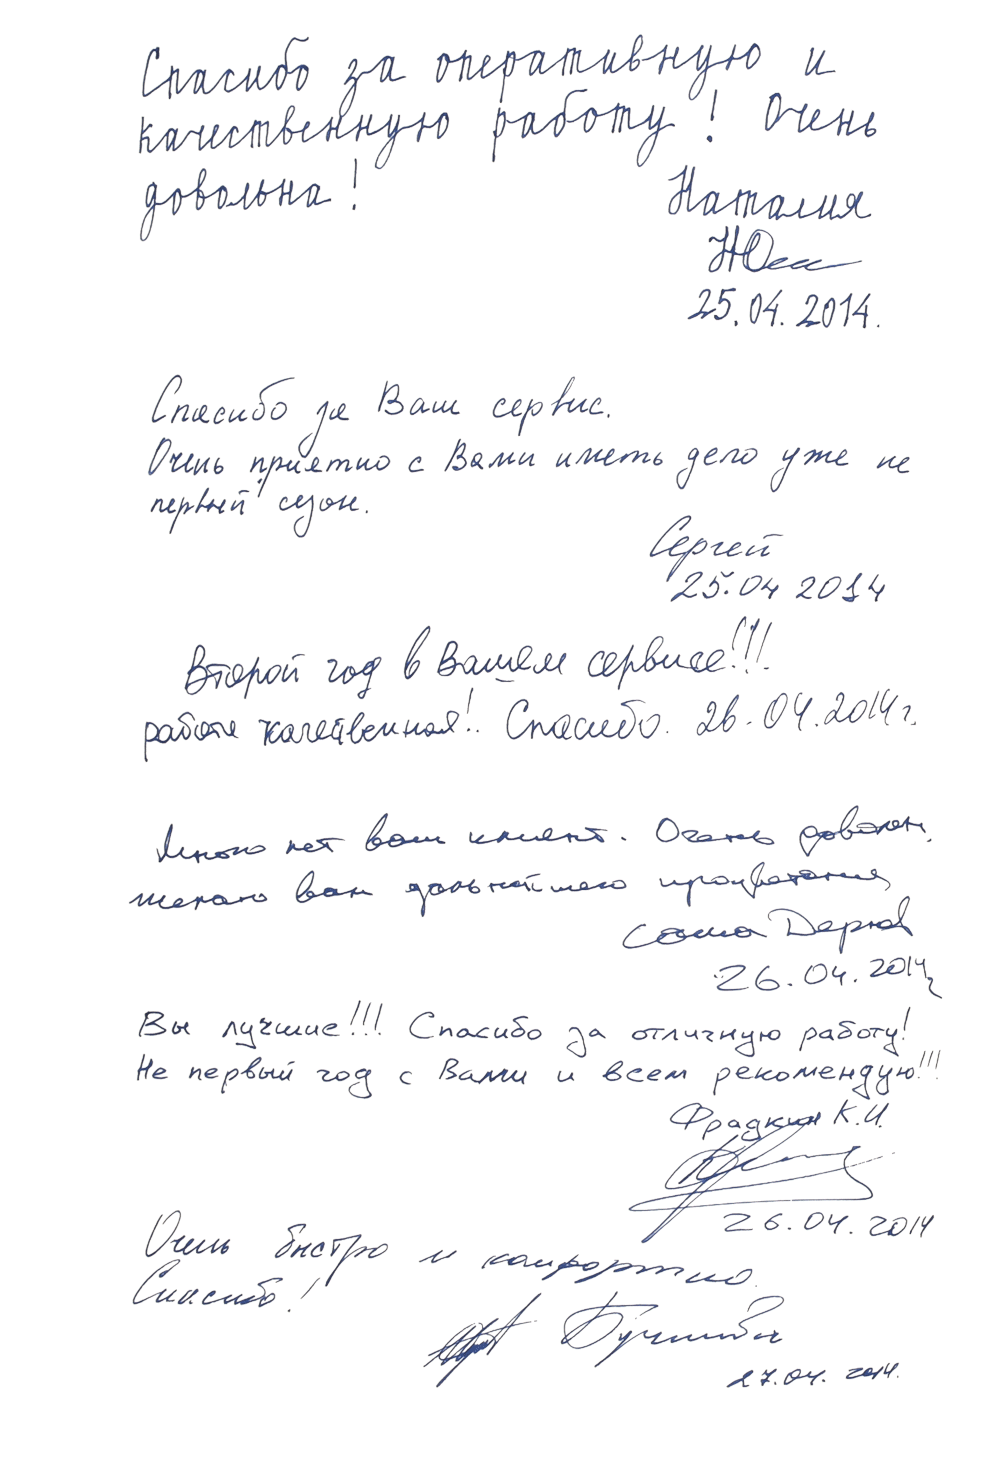 Спасибо за оперативную и
качественную работу! Очень
довольна!
Наталия
25.04.2014.
Спасибо за Ваш сервис.
Очень приятно с Вами иметь дело уже не
первый сезон.
Сергей
25.04 2014
Второй год в Вашем сервисе!!!
работа качественная!. Спасибо. 26.04.2014г.
Много лет ваш клиент. Очень доволен.
желаю вам дальнейшего процветания
Саша
26.04.2014г
Вы лучшие!!! Спасибо за отличную работу!
Не первый год с Вами и всем рекомендую!!!
Фрадкин К.И.
26.04.2014
Очень быстро и комфортно.
Спасибо!
27.04.2014.